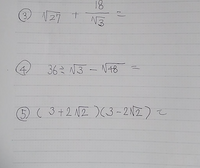 ③ √27 + 18/√3 =
④ 36 ÷ √3 − √48 =
⑤ (3+2√2)(3−2√2) =